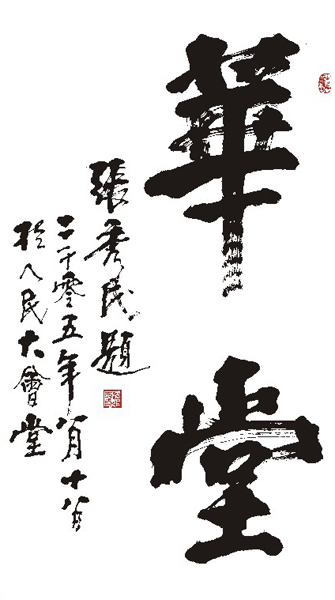 華堂
張秀民題
二千零五年八月十八日
於人民大會堂